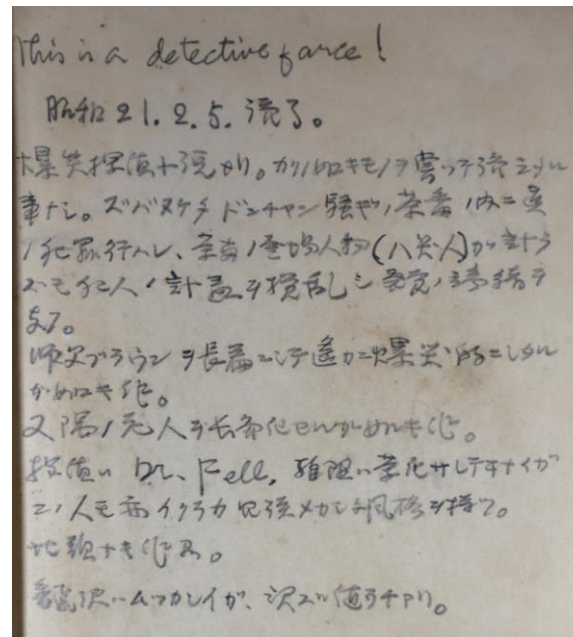 This is a detective farce!
昭和21.2.5.読了。
爆笑探偵小説ナリ。カクノ如キモノヲ
事ナシ。ズバヌケタドンチャン騒ギノ茶番ノ内ニ真
ノ犯罪行ハレ、茶番ノ登場人物(八笑人)が計ラ
ズモ犯人ノ計画ヲ攪乱シ発覚ノ端緒ヲ
師父ブラウンヲ長篇ニシテ遙カニ爆笑的ニシタル
が如キ作。
又隅ノ老人ヲ長篇化セルが如キ作。
探偵ハ Dr. Fell,
コノ人モ亦イクラカ 風格ヲ持ツ。
比類ナキ作風。
飜訳ハムツカシイガ、訳スル値打チアリ。